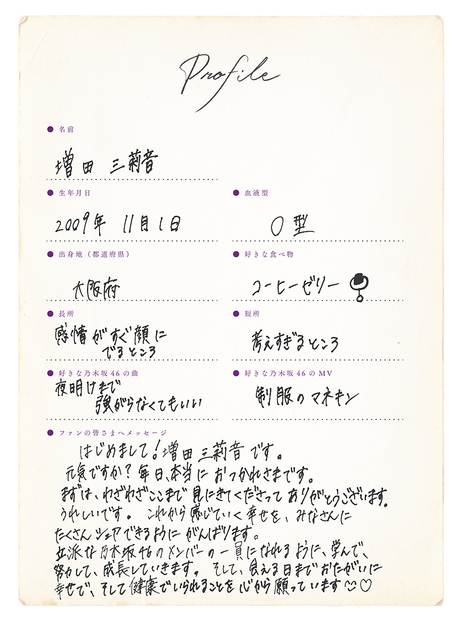 Profile
名前
増田 三莉音
生年月日
2009年 11月1日
血液型
O型
出身地(都道府県)
大阪府
好きな食べ物
コーヒーゼリー
長所
感情がすぐ顔に
でるところ
短所
考えすぎるところ
好きな乃木坂46の曲
夜明けまで
強がらなくてもいい
好きな乃木坂46のMV
制服のマネキン
ファンの皆さまへメッセージ
はじめまして!増田 三莉音です。
元気ですか?毎日、本当におつかれさまです。
まずは、わざわざここまで見にきてくださってありがとうございます。
うれしいです。これから感じていく幸せを、みなさんに
たくさんシェアできるようにがんばります。
立派な乃木坂46のメンバーの一員になれるように、学んで、
努力して、成長していきます。そして、会える日までおたがいに
幸せで、そして健康でいられることを心から願っています